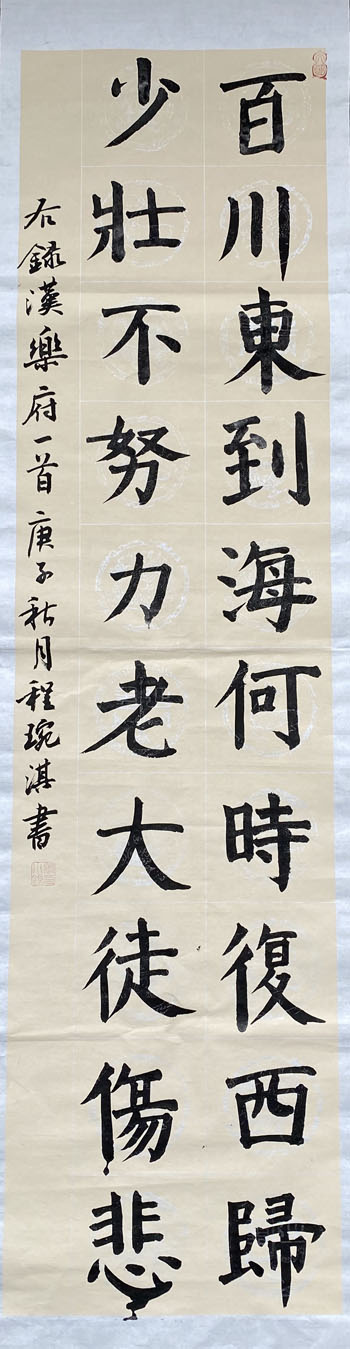 百川東到海何時復西歸
少壯不努力老大徒傷悲
右錄漢樂府一首庚子秋月程琬淇書